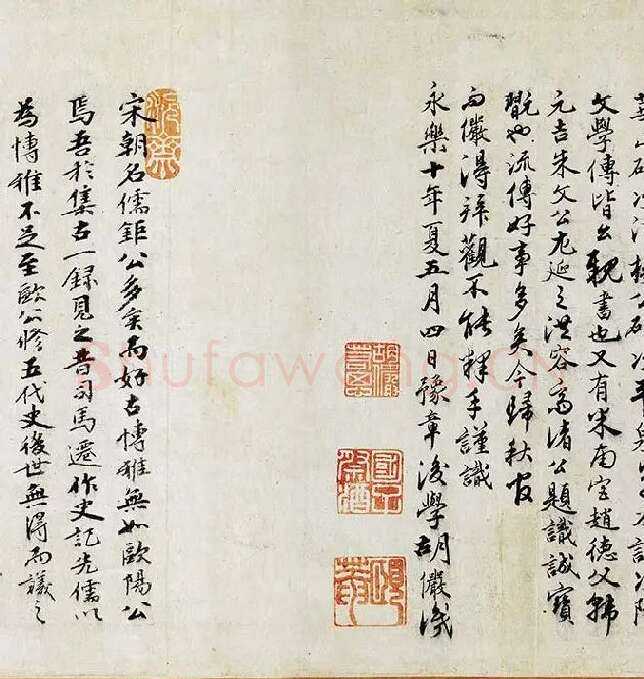 文學傳皆公親書也又有宋南宮趙德父韓
元吉朱文公尤延之洪容齋諸公題識誠寶
翫也流傳好事多矣今歸秋官
而儼得拜觀不能釋手謹識
永樂十年夏五月四日豫章後學胡儼識
胡儼若思
國子祭酒
頤菴
宋朝名儒鉅公多矣而好古博雅無如歐陽公
焉吾於集古一録見之昔司馬遷作史記先儒以
為博雅不足至歐公修五代史後世無得而議之
Shufawang.CN